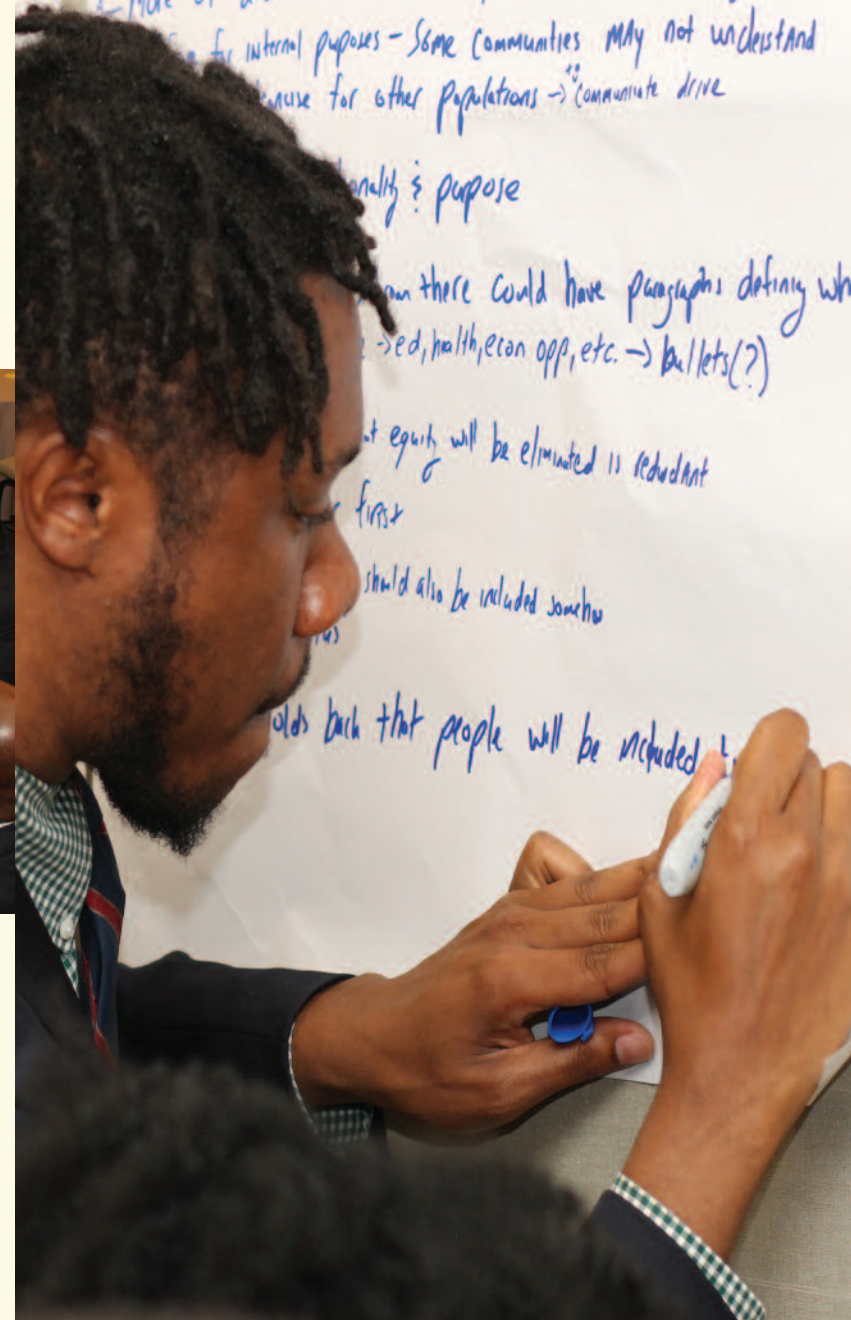 for internal puposes - Some Communities MAy not undeistand
for other populations → to communicate drive
& purpose
there could have paragraphs defining
→ed, health, econ opp, etc. → bullets(?)
equity will be eliminated is redundant
first
should also be included somehow
back that people will be included